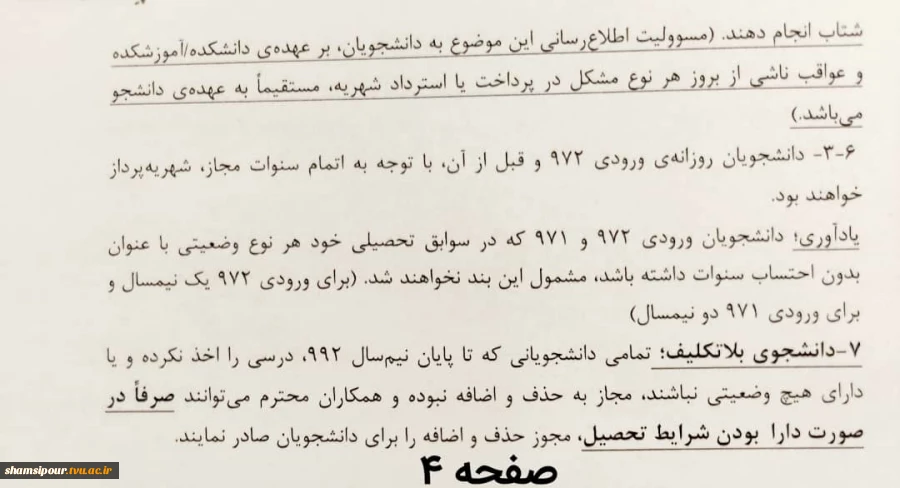 شتاب انجام دهند. (مسوولیت اطلاع‌رسانی این موضوع به دانشجویان، بر عهده‌ی دانشکده/آموزشکده
و عواقب ناشی از بروز هر نوع مشکل در پرداخت یا استرداد شهریه، مستقیماً به عهده‌ی دانشجو
می‌باشد.)
۳-۶- دانشجویان روزانه‌ی ورودی ۹۷۲ و قبل از آن، با توجه به اتمام سنوات مجاز، شهریه‌پرداز
خواهند بود.
یادآوری؛ دانشجویان ورودی ۹۷۲ و ۹۷۱ که در سوابق تحصیلی خود هر نوع وضعیتی با عنوان
بدون احتساب سنوات داشته باشد، مشمول این بند نخواهند شد. (برای ورودی ۹۷۲ یک نیمسال و
برای ورودی ۹۷۱ دو نیمسال)
۷-دانشجوی بلاتکلیف؛ تمامی دانشجویانی که تا پایان نیم‌سال ۹۹۲، درسی را اخذ نکرده و یا
دارای هیچ وضعیتی نباشند، مجاز به حذف و اضافه نبوده و همکاران محترم می‌توانند صرفاً در
صورت دارا بودن شرایط تحصیل، مجوز حذف و اضافه را برای دانشجویان صادر نمایند.
صفحه ۴
shamsipour.tvu.ac.ir